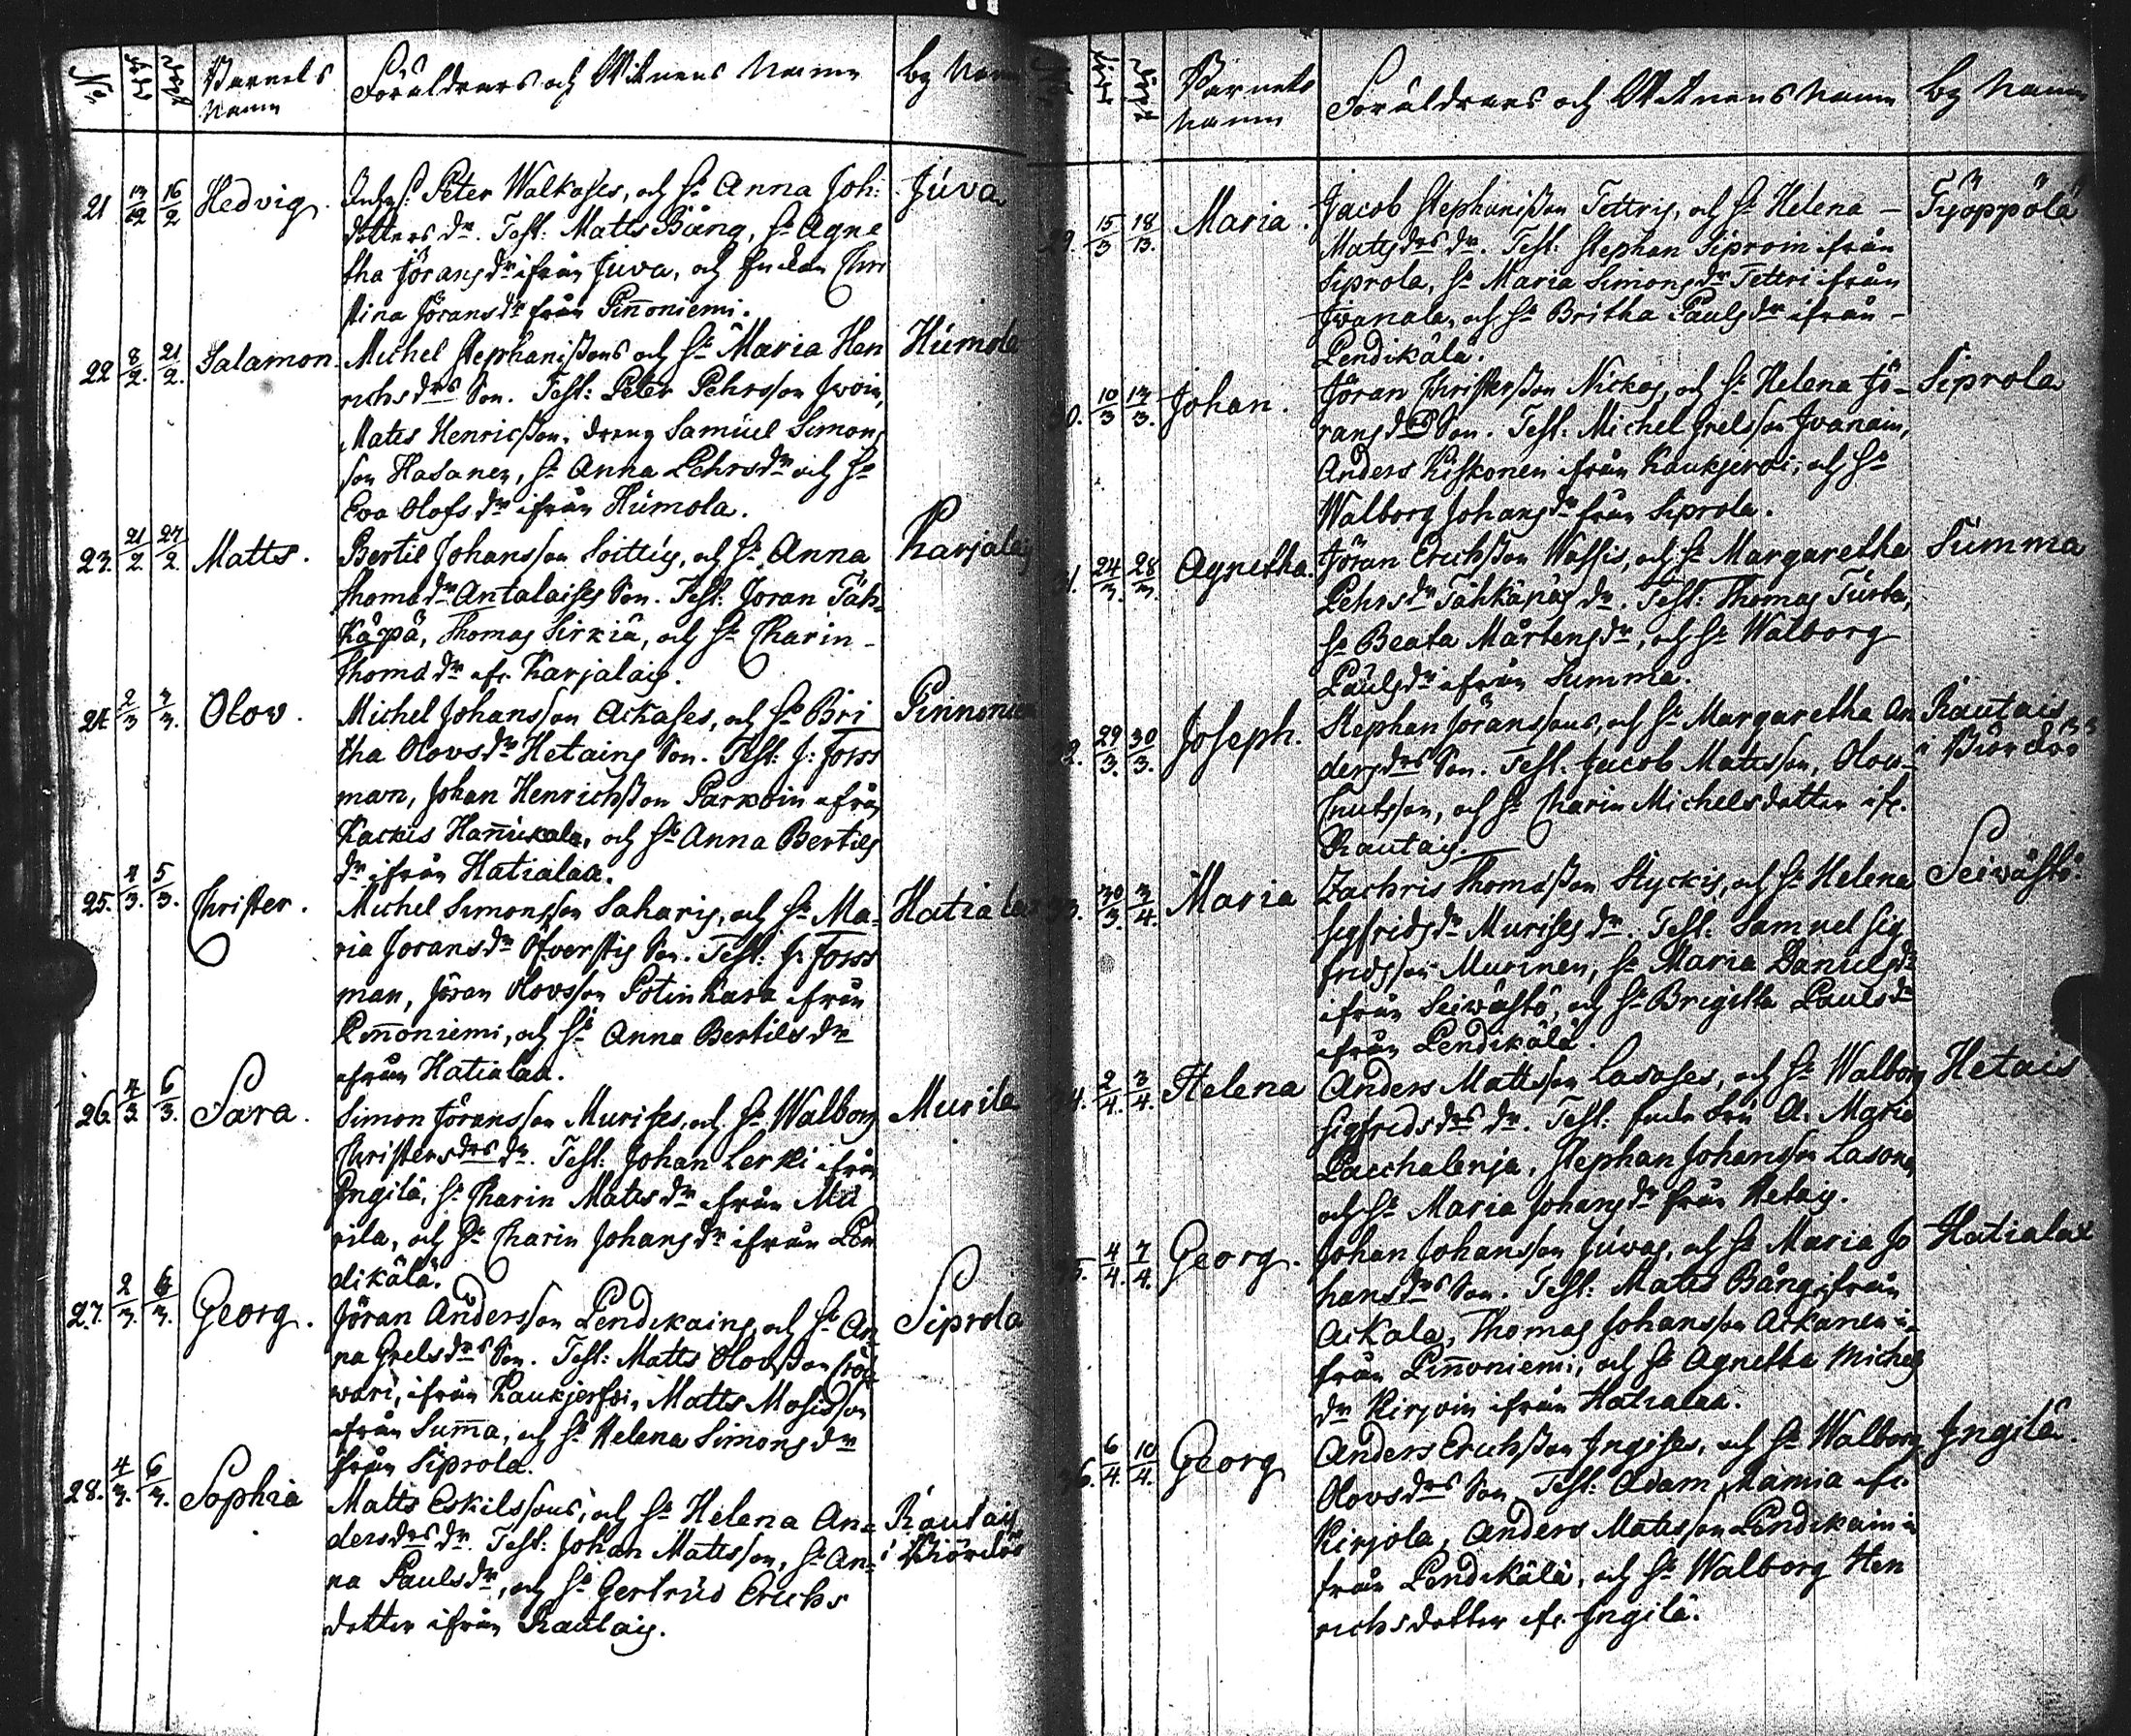 No födt döpt Barnets Namn Föräldrars och Witnens Namn by Namn
21 13/2 16/2 Hedvig. Peter Walkases, och H: Anna Joh: Juva
dotters dr. Test: Matts Bång, H: Agne
tha Jöransdr ifrån Juva, och Enckan Chri
stina Jöransdr från Pinnoniemi.
22 8/2. 21/2. Salamon. Michel Stephanissons och H: Maria Hen Humola
richsdrs Son. Test: Peter Pehrsson Iwoin,
Matts Henricsson, dreng Samuel Simons
son Hasanen, H: Anna Pehrsdr och H:
Eva Olofsdr ifrån Humola.
23. 21/2 27/2. Matts. Bertil Johansson Soittis, och H: Anna Karjalais
Thomadr Antalaises Son. Test: Jöran Täh
käpä, Thomas Sirkiä, och H: Charin
Thomadr ifr. Karjalais.
24. 2/3 3/3. Olov. Michel Johansson Ackases, och H: Bri Pinnoniemi
tha Olovsdr Hetains Son. Test: J: Forss
man, Johan Henrichsson Parkoin ifrån
Kackis Hannukala, och H: Anna Bertils
dr ifrån Hatialaa.
25. 4/3. 5/3. Christer. Michel Simonsson Saharis, och H: Ma Hatialaa
ria Joransdr Öfverstis Son. Test: J: Forss
man, Jöran Olovsson Potinkara ifrån
Pinnoniemi, och H: Anna Bertilsdr
ifrån Hatialaa.
26. 4/3 6/3. Sara. Simon Jöransson Murises, och H: Walborg Murila
Christersdrs dr. Test: Johan Lerkki ifrån
Ingilä, H: Charin Mattsdr ifrån Mu
rila, och H: Charin Johansdr ifrån Pen
dikälä.
27. 2/3. 6/3. Georg. Jöran Andersson Pendikains och H: An Siprola
na Grelsdrs Son. Test: Matts Olovsson
wari, ifrån Kaukjerfvi, Matts Mosisson
ifrån Summa, och H: Helena Simonsdr
från Siprola.
28. 4/3. 6/3. Sophia Matts Eskilssons, och H: Helena An= Rautais
dersdrs dr. Test: Johan Mattsson, H: An= i Biörckö
na Paulsdr, och H: Gertrud Erichs
dotter ifrån Rautais.
födt döpt Barnets Namn Föräldrars och Witnens Namn by Namn
29. 15/3 18/3. Maria. Jacob Stephanisson Tettris, och H: Helena Työppölä
Mattsdrs dr. Test: Stephan Siproin ifrån
Siprola, H: Maria Simonsdr Tettri ifrån
Ivanala, och H: Britha Paulsdr ifrån
Pendikälä.
30. 10/3 13/3. Johan. Jöran Christersson Nickas, och H: Helena Jö Siprola
ransdrs Son. Test: Michel Grelsson Ivanain,
Anders Kiskonen ifrån Kaukjervi, och H:
Walborg Johansdr från Siprola.
31. 24/3. 28/3. Agnetha. Jöran Erichsson Wassis, och H: Margaretha Summa
Pehrsdr Tähkäpäs dr. Test: Thomas Turta,
H: Beata Mårtensdr, och H: Walborg
Paulsdr ifrån Summa.
32. 29/3. 30/3. Joseph. Stephan Jöranssons, och H: Margaretha An Rautais
dersdrs Son. Test: Jacob Mattsson, Olov i Biörckö
Cnutsson, och H: Charin Michelsdotter ifr.
Rautais.
33. 30/3. 3/4. Maria Zachris Thomasson Styckis, och H: Helena Seiwästö.
Sigfridsdr Murises dr. Test: Samuel Sig
fridsson Murinen, H: Maria Danielsdr
ifrån Seiwästö, och H: Brigitta Paulsdr
ifrån Pendikälä.
34. 2/4. 3/4. Helena Anders Mattsson Lasases, och H: Walborg Hetais
Sigfridsdrs dr. Test: A: Maria
Pacchalenja, Stephan Johansson Lasonen
och H: Maria Johansdr från Hetais.
35. 4/4. 7/4. Georg. Johan Johansson Juvas, och H: Maria Jo Hatialaa
hansdrs Son. Test: Matts Bång ifrån
Ackala, Thomas Johansson Ackanen i
från Pinnoniemi, och H: Agnetha Michels
dr Kirjoin ifrån Hatialaa.
36. 6/4. 10/4. Georg Anders Erichsson Ingises, och H: Walborg Ingilä.
Olovsdrs Son. Test: Adam Mämiä ifr.
Kirjola, Anders Mattsson Pendikain i
från Pendikälä, och H: Walborg Hen
richsdotter ifr. Ingilä.